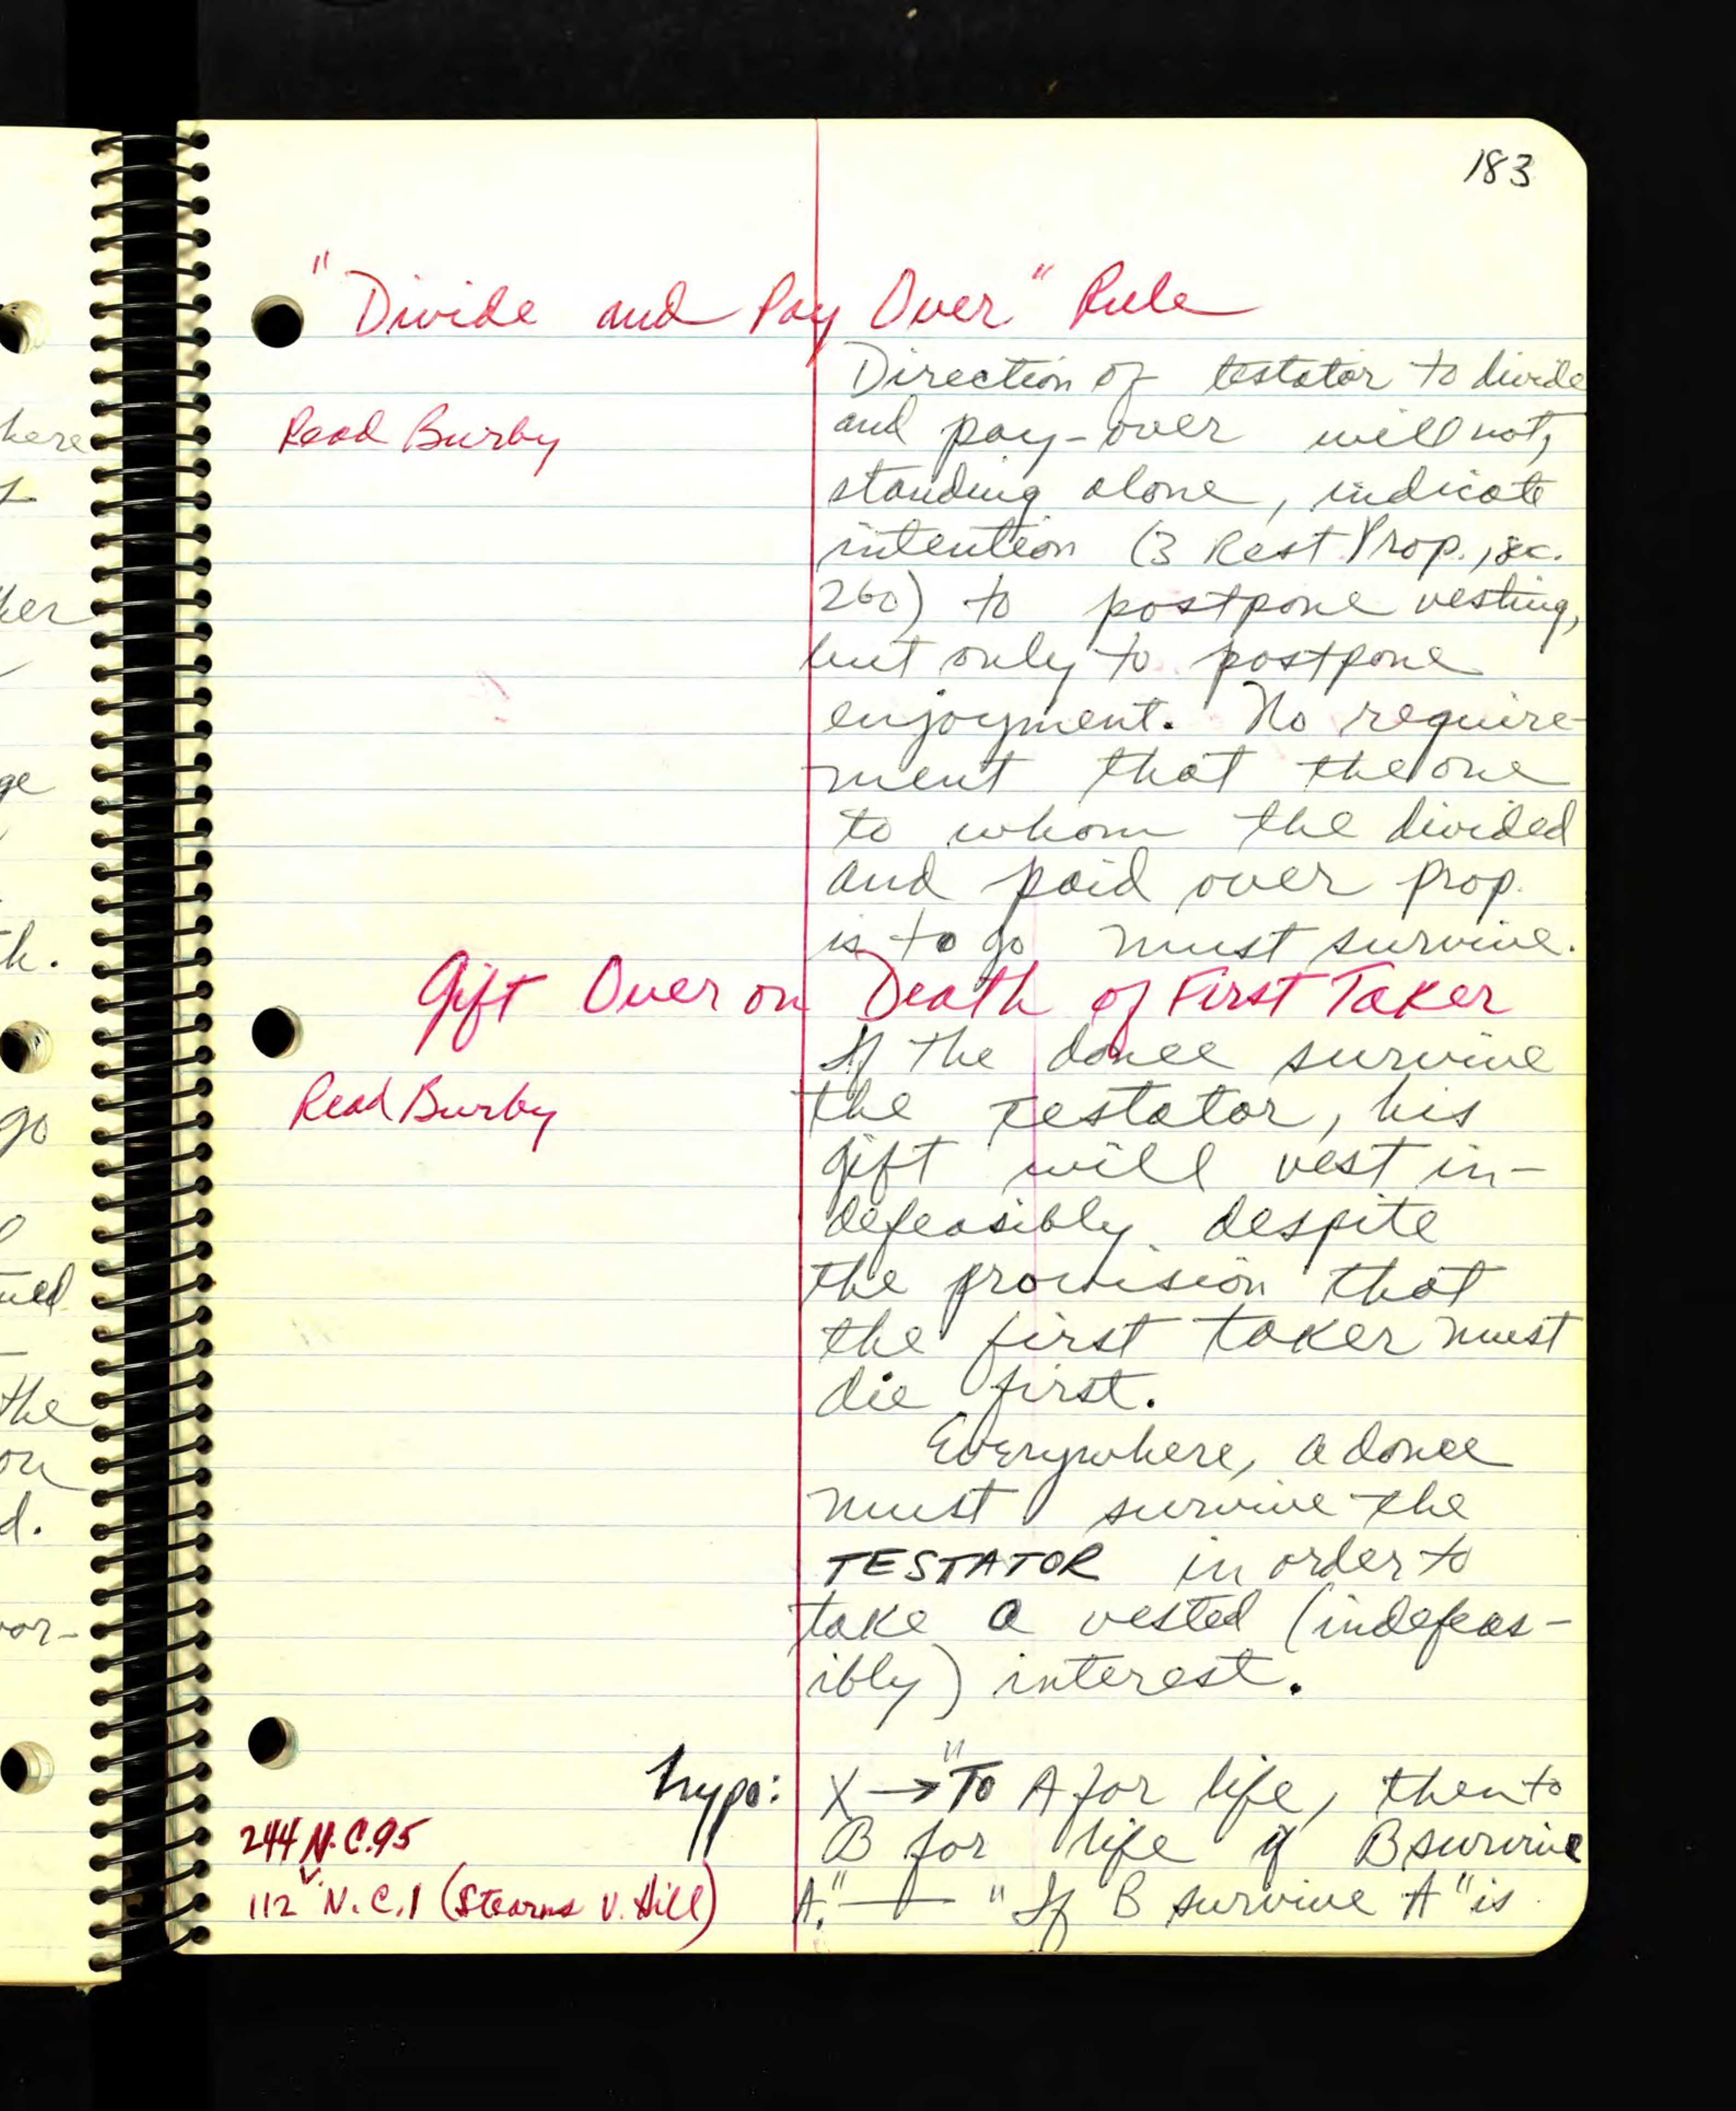 183
"Divide and Pay Over" Rule
Direction of testator to divide
Read Burby
and pay-over will not,
standing alone, indicate
intention (3 Rest. Prop., sec.
260) to postpone vesting,
but only to postpone
enjoyment. No require-
ment that the one
to whom the divided
and paid over prop.
is to go must survive.
Gift Over on Death of First Taker
If the donee survive
Read Burby
the testator, his
gift will vest in-
defeasibly despite
the provision that
the first taker must
die first.
Everywhere, a donee
must survive the
TESTATOR in order to
take a vested (indefeas-
ibly) interest.
hypo: X → "To A for life, then to
B for life if B survive
244 N.C. 95
A." — "If B survive A" is
112 N.C. 1 (Stearns v. Hill)
here
her
ge
th.
go
ued
the
on
d.
vor-